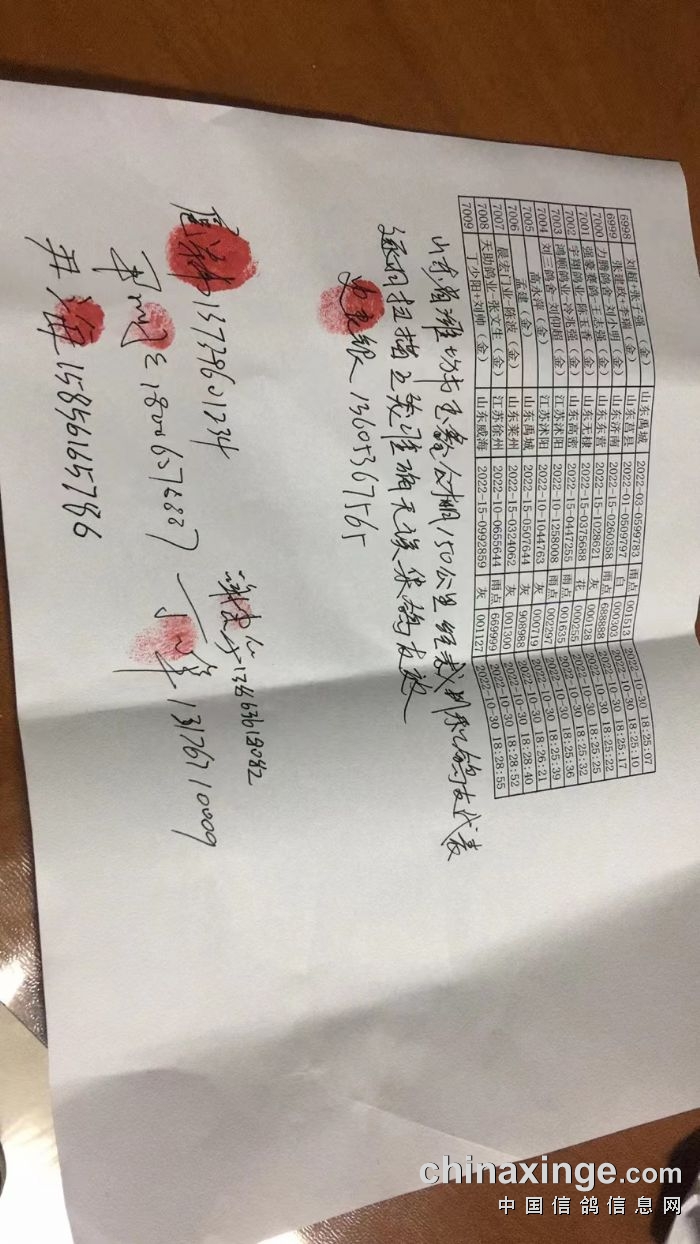 6998 刘超+张子强（金） 山东禹城 2022-03-0599783 雨点 001513 2022-10-30 18:25:07
6999 张建故·李瑞（金） 山东莒县 2022-01-0509797 白 000303 2022-10-30 18:25:10
7000 力腾鸽舍-刘小明（金） 山东济南 2022-15-0260358 雨点 688888 2022-10-30 18:25:17
7001 强豪赛鸽-王志强（金） 山东东营 2022-15-1028621 灰 000128 2022-10-30 18:25:22
7002 宇翔鸽业-陈玉香（金） 山东无棣 2022-15-0375688 花 000255 2022-10-30 18:25:25
7003 鸿顺鸽业-冷兆强（金） 山东高密 2022-15-0447255 雨点 001635 2022-10-30 18:25:32
7004 刘三鸽舍-刘仰超（金） 江苏沭阳 2022-10-1258008 雨点 002297 2022-10-30 18:25:36
7005 高永萍（金） 江苏沭阳 2022-10-1044763 灰 000719 2022-10-30 18:25:39
7006 孟建（金） 山东禹城 2022-15-0507644 灰 908988 2022-10-30 18:26:21
7007 晨宏门业-陈波（金） 山东莱州 2022-15-0324062 灰 001300 2022-10-30 18:28:40
7008 天助鸽业-张文生（金） 江苏徐州 2022-10-0655644 雨点 669999 2022-10-30 18:28:52
7009 丁少阳+刘帅（金） 山东威海 2022-15-0992859 灰 001127 2022-10-30 18:28:55
山东省潍坊市玉鑫公棚150公里经裁判和鸽友代表
逐羽扫描上笼准确无误集鸽有效
13605367565
15738601234
13863619082
18006376887
13176710009
15856165786
chinaxinge.com
中国信鸽信息网